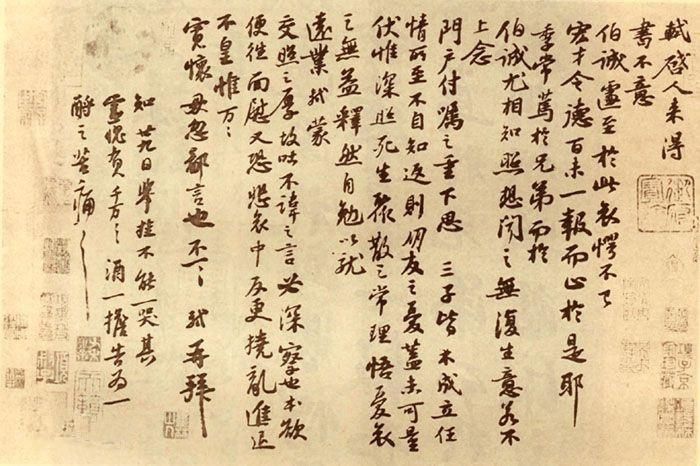 軾啓人来得
書不意
伯誠遽至於此哀愕不已
宏才令德百未一報而止於是耶
季常篤於兄弟而於
伯誠尤相知照想聞之無復生意若不
上念
門户付囑之重下思三子皆不成立任
情所至不自知返則朋友之憂蓋未可量
伏惟深照死生聚散之常理悟憂哀
之無益釋然自勉以就
遠業軾蒙
交照之厚故吐不諱之言必深察也本欲
便往面慰又恐悲哀中反更撓亂進退
不皇惟万万
寬懷毋忽鄙言也不一一軾再拜
知廿九日舉挂不能一哭其
靈愧負千万千万酒一擔告爲一
酹之苦痛苦痛